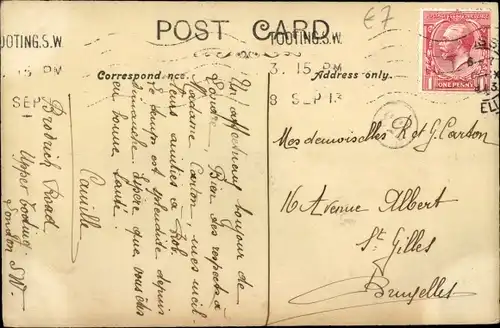 €7
POST CARD
TOOTING.S.W.
TOOTING.S.W.
3. 15 PM
8 SEP 13
15 PM
SEP
Correspondence.
Address only.
ONE PENNY
Un affectueux bonjour de
Londres. Bien des respects à
Madame Carton, mes meil-
leurs amitiés à Rob.
Le temps est splendide depuis
dimanche. J'espère que vous êtes
en bonne santé.
Camille
Brodrick Road
Upper Tooting
London S.W.
Mesdemoiselles R et G. Carton
16 Avenue Albert
St Gilles
Bruxelles